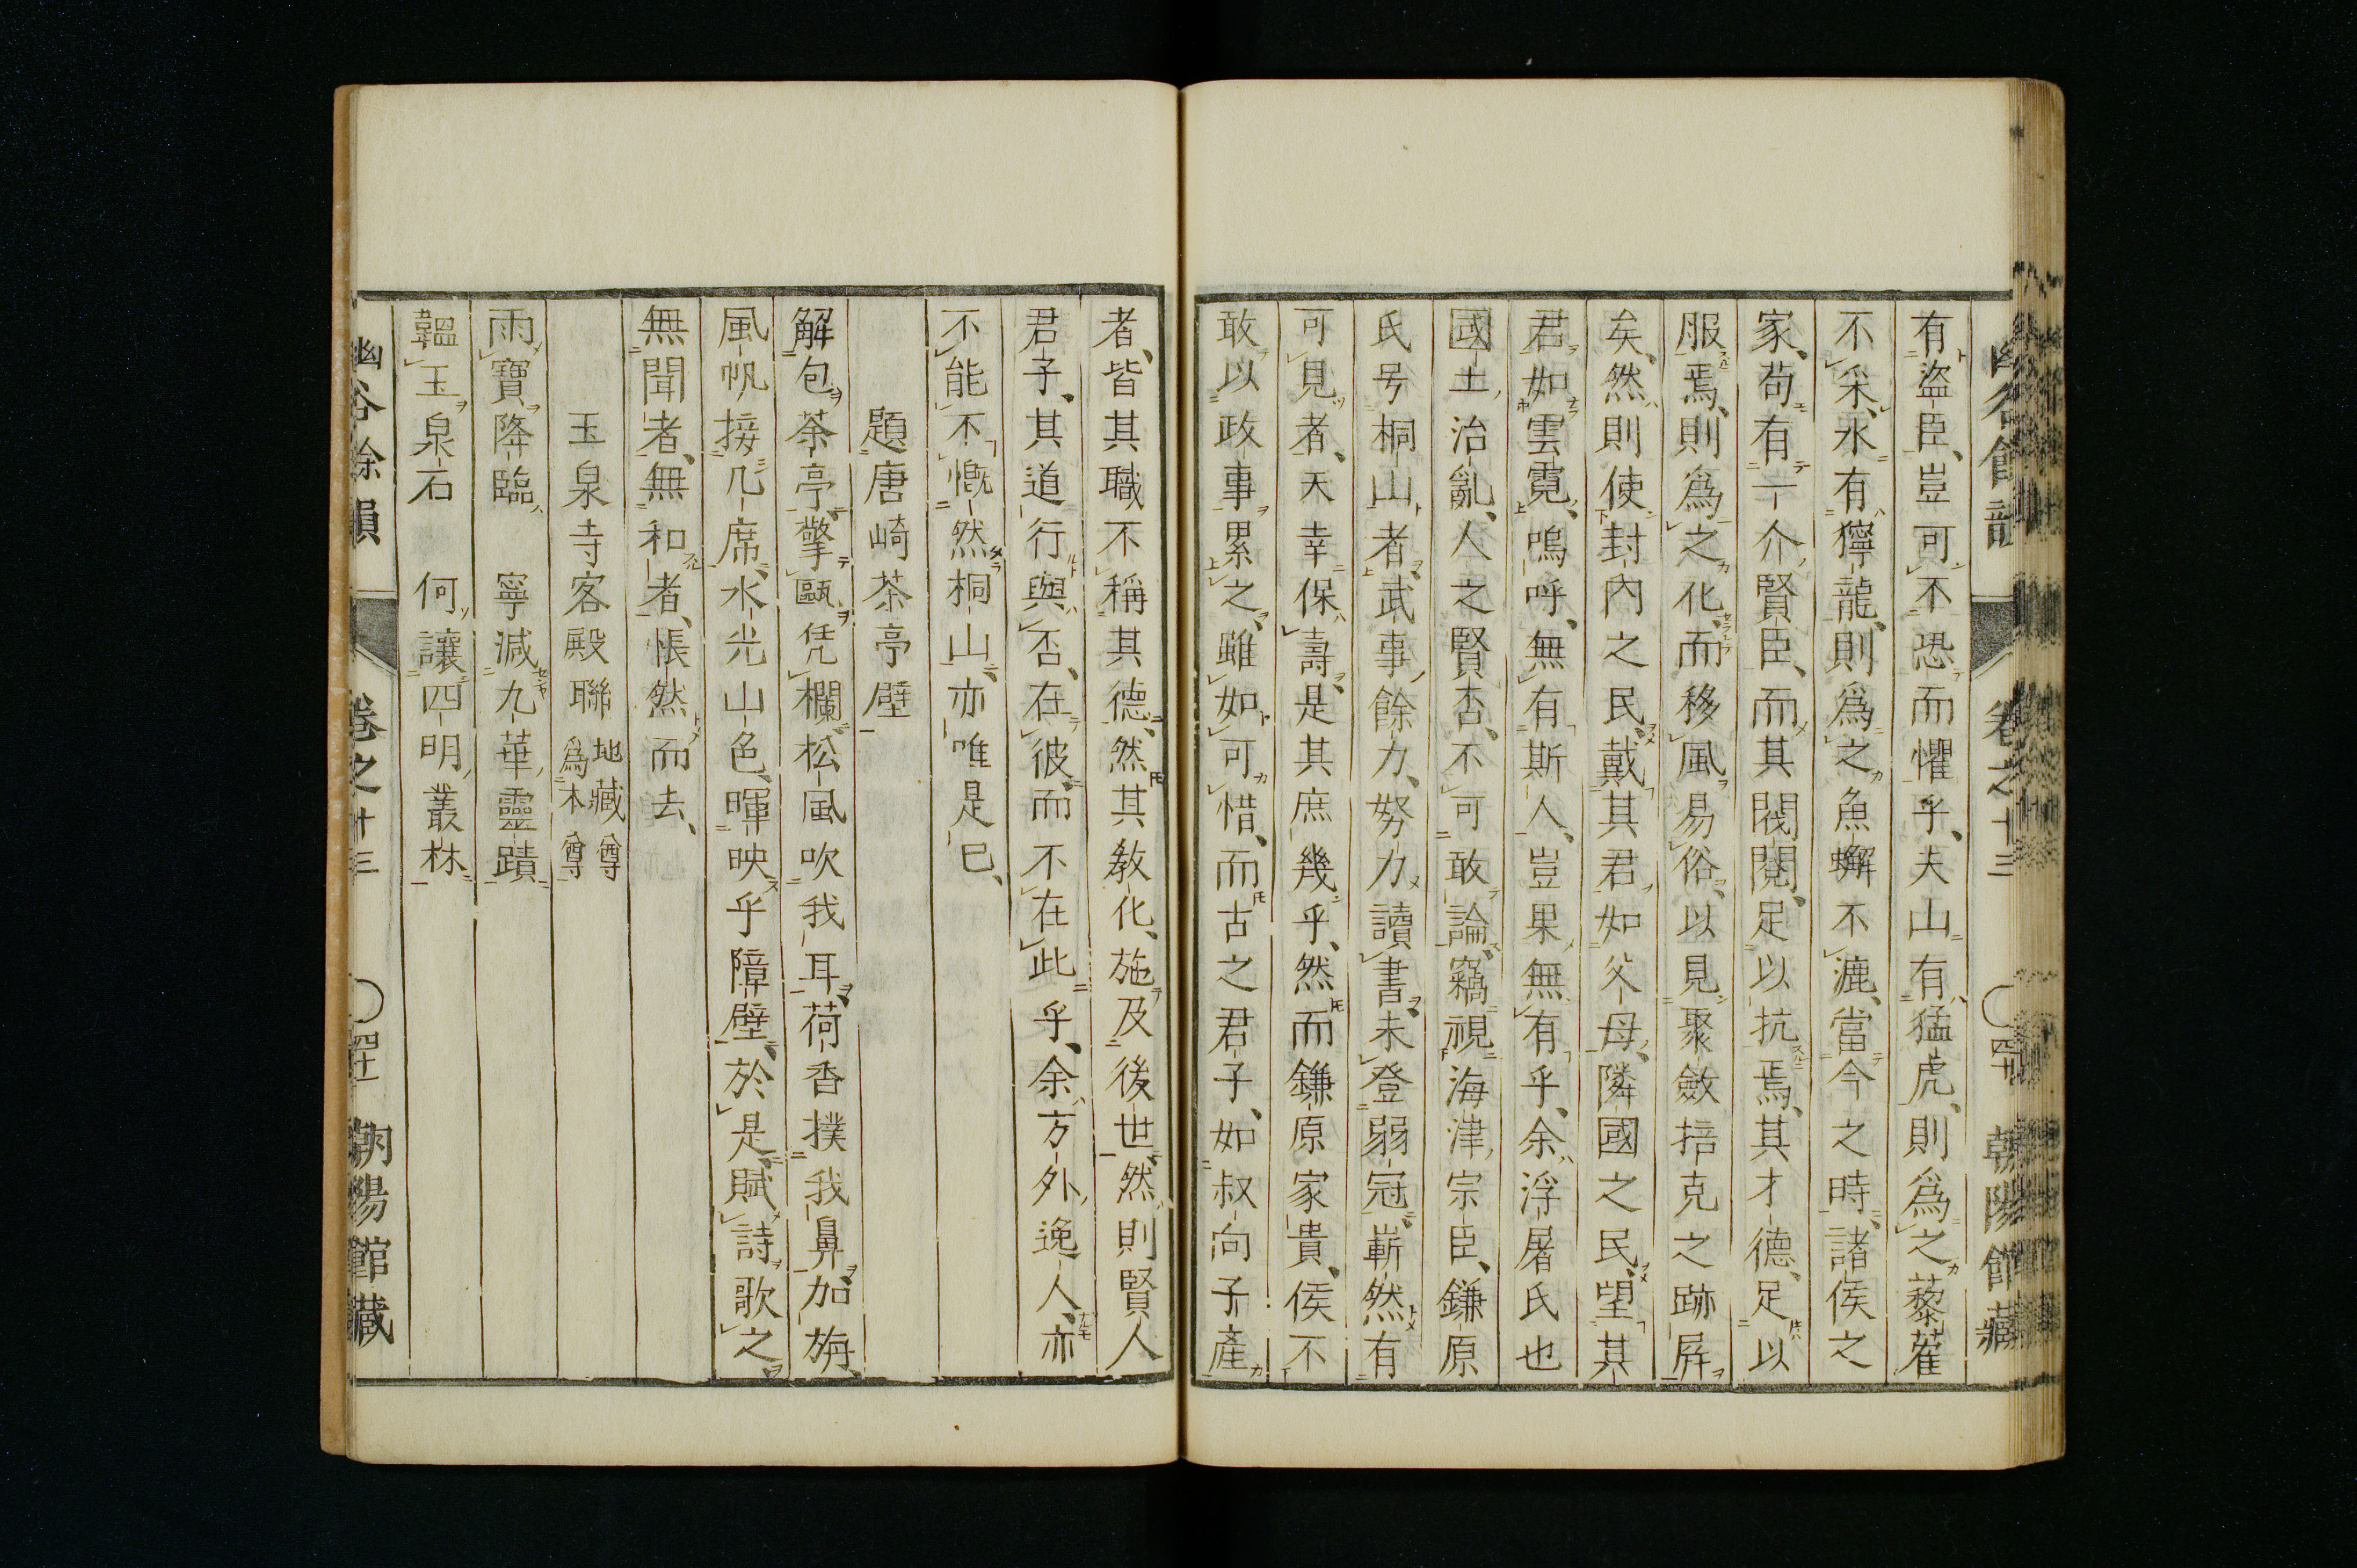 有盜臣、豈可不恐而懼乎、夫山有猛虎、則爲之藜藿
不采、水有獰龍、則爲之魚蠏不漉、當今之時、諸侯之
家、苟有一介賢臣、而其閥閱、足以抗焉、其才德、足以
服焉、則爲之化、而移風易俗、以見聚斂掊克之跡屛
矣、然則使封內之民、戴其君如父母、隣國之民、望其
君如雲霓、嗚呼、無有斯人、豈果無有乎、余浮屠氏也
國土治亂、人之賢否、不可敢論、竊視海津宗臣、鎌原
氏号桐山者、武事餘力、努力讀書、未登弱冠、嶄然有
可見者、天幸保壽、是其庶幾乎、然而鎌原家貴、侯不
敢以政事累之、雖如可惜、而古之君子、如叔向子產
者、皆其職不稱其德、然其教化、施及後世、然則賢人
君子、其道行與否、在彼、而不在此乎、余方外逸人、亦
不能不慨然桐山、亦唯是已、
題唐崎茶亭壁
解包茶亭、擎甌凭欄、松風吹我耳、荷香撲我鼻、加旃、
風帆接几席、水光山色、暉映乎障壁、於是、賦詩歌之、
無聞者、無和者、悵然而去、
玉泉寺客殿聯 地藏尊爲本尊
雨寶降臨 寧減九華靈蹟
韞玉泉石 何讓四明叢林
幽谷餘韻 卷之十三 〇四十一 朝陽館藏